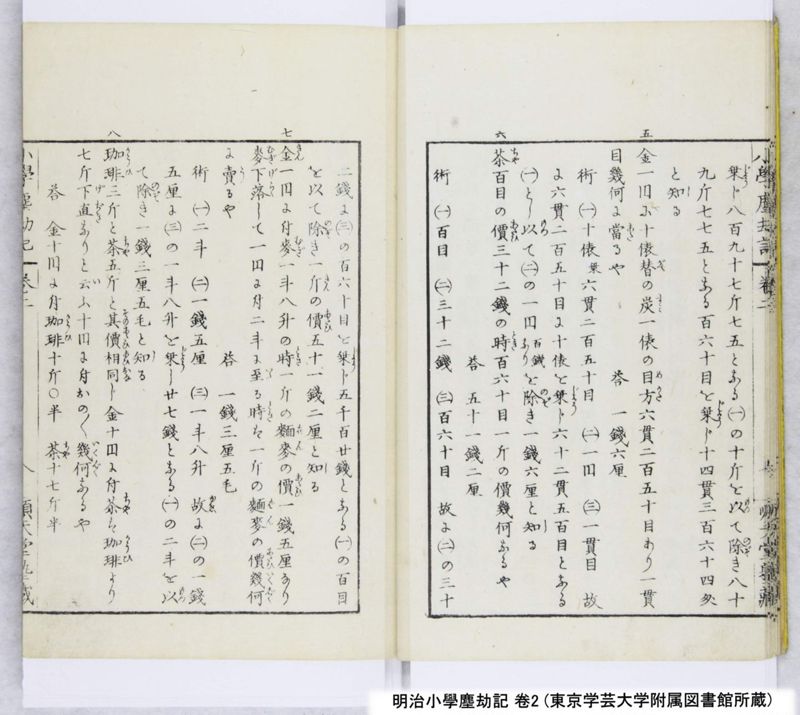 乗ド八百九十七斤七五となる㈠の十斤を以て除き八十
九斤七七五となる百六十目を乗ド十四貫三百六十四匁
と知る
五
金一円に十俵替の炭一俵の目方六貫二百五十目あり一貫
目幾何に當るや
答 一錢六厘
術 ㈠十俵 炭六貫二百五十目 ㈡一円 ㈢一貫目 故
に六貫二百五十目に十俵を乗ド六十二貫五百目となる
㈠とし以て㈡の一円百錢ありを除き一錢六厘と知る
六
茶百目の價三十二錢の時百六十目一斤の價幾何なるや
答 五十一錢二厘
術 ㈠百目 ㈡三十二錢 ㈢百六十目 故に㈡の三十
二錢に㈢の百六十目を乗ド五千百廿錢となる㈠の百目
を以て除き一斤の價五十一錢二厘と知る
七
金一円に付麥一斗八升の時一斤の麵麥の價一錢五厘なり
麥下落して一円に付二斗に至る時は一斤の麵麥の價幾何
に賣るや
答 一錢三厘五毛
術 ㈠二斗 ㈡一錢五厘 ㈢一斗八升 故に㈡の一錢
五厘に㈢の一斗八升を乗し廿七錢となる㈠の二斗を以
て除き一錢三厘五毛と知る
八
珈琲三斤と茶五斤と其價相同し金十円に付茶は珈琲より
七斤下直なりと云ふ十円に付おの〱幾何なるや
答 金十円に付珈琲十斤〇半 茶十七斤半
明治小學塵劫記 巻2 (東京学芸大学附属図書館所蔵)